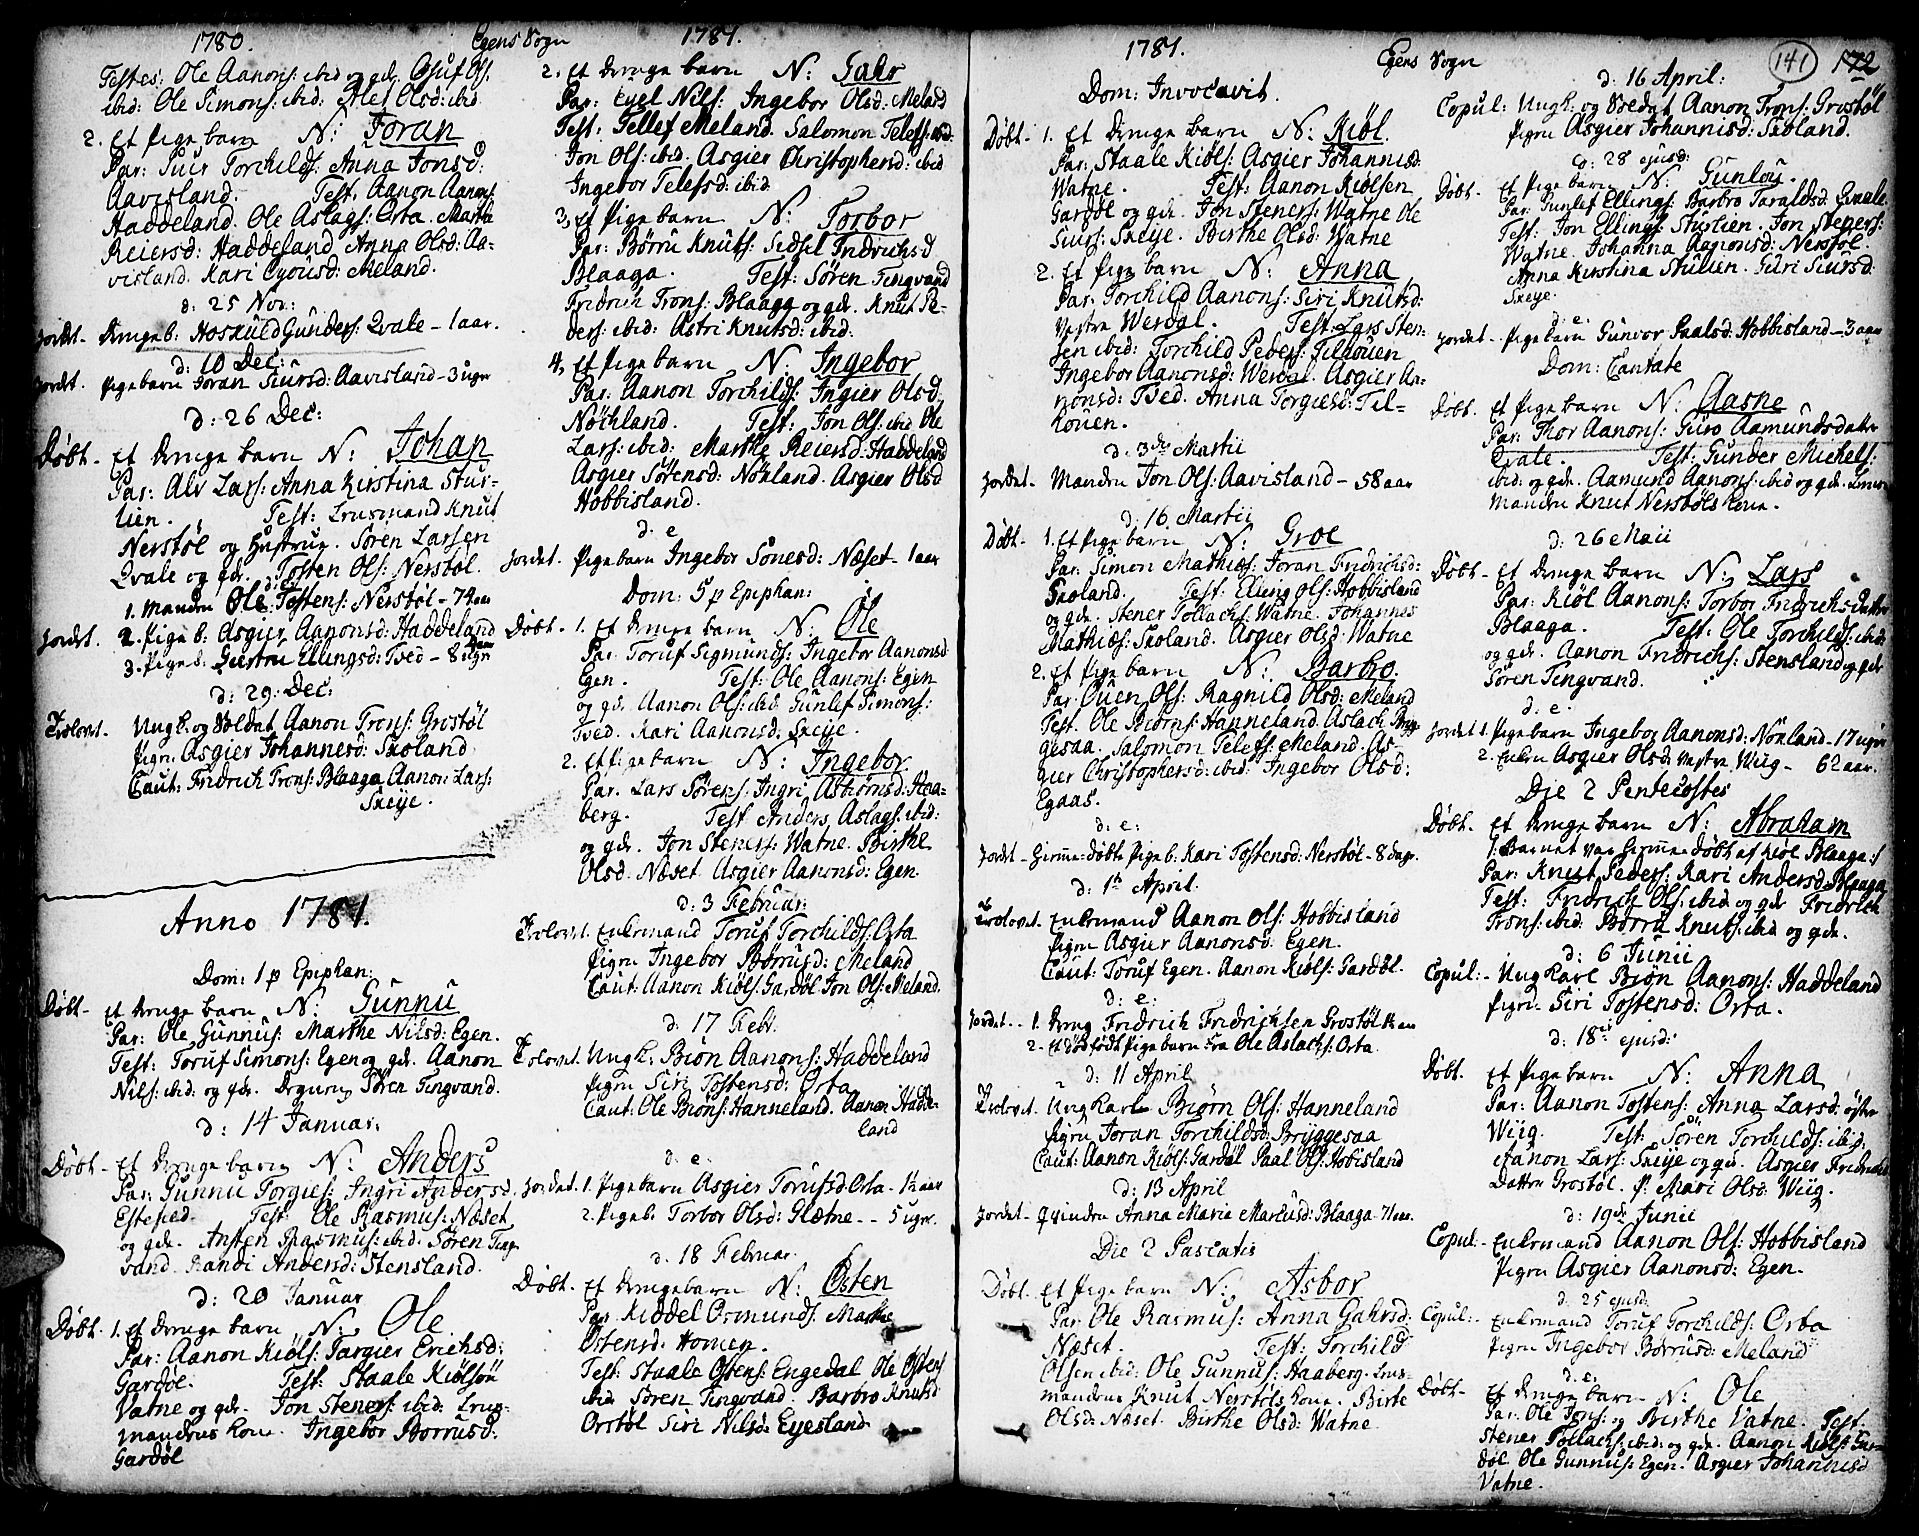 1780. Egens Sogn
Testes: Ole Aanons: ibid og qde. Osuf Ols:
ibid: Ole Simons: ibid: Olsd: ibid
2. Et Pige barn N: Joran
Par: Siur Torchilds: Anna Jonsd:
Aavisland. Test. Aanon Aanons
Haddeland. Ole Aslags: Orta. Marthe
Reiersd: Haddeland Anna Olsd: Aa-
visland. Kari Meland.
d: 25 Nov:
Jordet - Drengeb: Hoskuld Gunders: Qvale - 1 aar.
d: 10 Dec:
Jordet. Pigebarn Joran Siursd: Aavisland - 3 ugr
d: 26 Dec:
Døbt - Et Drenge barn N: Johan
Par: Alv Lars: Anna Kirstina Stur-
lien. Test: Lensmand Knut
Nerstøl og Hustrue. Sören Larsen
Qvale og qde. Tosten Ols: Nerstøl.
d: e:
1. Manden Ole Tostens: Nerstøl - 74 aar
Jordet. 2. Pige b: Asgier Aanonsd: Haddeland
3. Pige b. Giertru Ellingsd: Tved - 8 ugr
d: 29: Dec:
Trolovet. Ungk. og Soldat Aanon Trons: Grostøl
Pigen Asgier Johannesd: Skoland
Caut: Fridrich Trons: Blaaga Aanon Lars:
Skeije.
Anno 1781.
Dom: 1 p Epiphan:
Døbt - Et Drenge barn N: Gunnu
Par: Ole Gunnus: Marthe Nilsd: Egen.
Test: Toruf Simons: Egen og qde. Aanon
Nils: ibid: og qde. Degnen Sören Tingvand.
d: 14 Januar:
Døbt - Et Drenge barn N: Anders
Par: Gunnu Torgies: Ingri Andersd.
Test: Ole Rasmus: Næset
og qde. Ansten Rasmus: ibid: Sören Ting-
vand. Randi Andersd: Stensland.
d: 20 Januar
Døbt. 1. Et Drenge barn N: Ole
Par: Aanon Kiöls: Targier Erichsd:
Gardøl. Test: Staale Kiölsön
Vatne og qde. Jon Steners: ibid: Lens-
mandens Kone. Ingebor Börrusd:
Gardøl
1781.
2. Et Drenge barn N: Gahr
Par: Eyel Nils: Ingebor Olsd: Meland
Test: Tellef Meland. Salomon Telefs: ibid.
Jon Ols: ibid. Asgier Christophersd: ibid
Ingebor Telefsd: ibid
3, Et Pige barn N: Torbor
Par: Børru Knuts: Sidsel Fridrichsd
Blaaga. Test: Sören Tingvand
Fridrich Trons: Blaaga og qde. Knut Pe-
ders: ibid: Astri Knutsd: ibid:
4, Et Pige barn N: Ingebor
Par: Aanon Torchilds: Ingier Olsd.
Nökland. Test: Jon Ols: ibid Ole
Lars: ibid: Marthe Reiersd: Haddeland
Asgier Sörensd: Nökland. Asgier Olsd
Hobbisland.
d: e
Jordet. Pigebarn Ingebor Sönesd: Næset - 1 aar
Dom: 5 p Epiphan:
Døbt - 1. Et Drenge barn N: Ole
Par: Toruf Sigmunds: Ingebor Aanonsd
Egen. Test: Ole Aanons: Egen
og qde. Aanon Ols: ibid Gunlef Simons:
Tved. Kari Aanonsd: Skeije.
2. Et Pige barn N: Ingebor
Par. Lars Sörens: Ingri Asbörnsd: Haa-
berg. Test Anders Aslags: ibid:
og qde. Jon Steners: Watne. Birthe
Olsd. Næset. Asgier Aanonsd: Egen.
d: 3 Februar:
Trolovet. Enkemand Toruf Torchilds: Orta
Pigen Ingebor Børrusd: Meland
Caut: Aanon Kiöls: Gardøl Jon Ols: Meland.
d. 17 Febr.
Trolovet. Ungk: Biøn Aanons: Haddeland
Pigen Siri Tostensd: Orta
Caut: Ole Biöns: Hanneland. Aanon Hadde-
land
d. e:
Jordet. 1. Pigebarn Asgier Torufsd Orta - 1½ aar
2. Pigeb. Torbor Olsd: Glætne - - 5 ugr.
d. 18 Februar.
Døbt. Et Drengebarn N: Østen
Par. Kiddel Osmunds. Marthe
Ostensd: Homen.
Test: Staale Ostens: Engedal Ole Østens
ibid Sören Tingvand Barbro Knutsd
Orstøl Siri Nilsd: Eyesland
1781. Egens Sogn
Dom: Invocavit.
Døbt - 1. Et Drenge barn N: Kiøl
Par: Staale Kiöls: Asgier Johannesd.
Watne. Test: Aanon Kiölsen
Gardøl og qde. Jon Steners: Watne Ole
Siurs: Skeije. Birthe Olsd: Watne
2. Et Pige barn N: Anna
Par: Torchild Aanons: Siri Knutsd:
Vestre Werdal. Test: Lars Sten-
sen ibid: Torchild Peders: Tilkouen
Ingebor Aanonsd: Werdal. Asgier Aa-
nonsd: Tved. Anna Torgiesd: Til-
kouen.
d: 3de Martii
Jordet - Manden Jon Ols: Aavisland - 58 aar
d: 16 Martii
Døbt - 1. Et Pige barn N: Groe
Par: Simon Mathies: Joran Fridrichsd:
Skoland. Test: Elling Ols: Hobbisland
og qde. Stener Tollachs: Watne. Johannes
Mathies: Skoland. Asgier Olsd: Watne
2. Et Pige barn N: Barbro.
Par: Ouen Ols: Ragnild Olsd: Meland
Test. Ole Biörns: Hanneland. Aslach Bryg-
gesaa. Salomon Telefs: Meland. As-
gier Christophersd: ibid: Ingebor Olsd:
Egaas.
d: e:
Jordet - Hjemme-döbte Pige b. Kari Tostensd: Nerstøl - 8 dage.
d: 1te April.
Trolovet. Enkemand Aanon Ols: Hobbisland
Pigen Asgier Aanonsd: Egen.
Caut: Toruf Egen. Aanon Kiöls: Gardøl.
d: e:
Jordet - 1. Dreng Fridrich Fridrichsen Grostøl 14 aar
2. Et dödfödt Pigebarn fra Ole Aslachs: Orta.
d: 11 April
Trolovet. Ungkarl Biørn Ols: Hanneland
Pigen Joran Torchildsd: Bryggesaa
Caut: Aanon Kiöls: Gardøl Paal Ols: Hobisland
d: 13 April
Jordet - Qvinden Anna Maria Marcusd: Blaaga - 71 aar.
Die 2 Pascatis
Døbt. Et Pige barn N: Asbor
Par: Ole Rasmus: Anna Gahrsd:
Næset. Test: Torchild
Olsen ibid: Ole Gunnus: Haaberg. Lens-
mandens Knut Nerstøls kone. Birte
Olsd: Næset. Birthe Olsd: Watne.
141 172
d: 16 April:
Copul: Ungk: og Soldat Aanon Trons: Grostøl
Pigen Asgier Johannisd: Skoland.
d: 28 ejusd:
Døbt. Et Pige barn N: Gunlou
Par: Gunlef Ellings: Barbro Taraldsd: Qvale
Test: Jon Ellings: Sturlien. Jon Steners:
Watne. Johanna Aanonsd: Nerstøl.
Anna Kirstina Stulien. Guri Siursd:
Skeye.
d: e:
Jordet - Pigebarn Gunvor Paalsd: Hobbisland - 3 aar
Dom: Cantate
Døbt. Et Pige barn N: Aasne
Par: Thor Aanons: Guro Aamundsdatter
Qvale. Test: Gunder Michels:
ibid: og qde. Aamund Aanons: ibid og qde. Lens-
manden Knut Nerstøls kone.
d: 26 Maii
Døbt - Et Drenge barn N: Lars
Par: Kiöl Aanons: Torbor Fridrichsdatter
Blaaga. Test: Ole Torchilds: ibid:
og qde. Aanon Fridrichs: Stensland og qde
Sören Tingvand.
d: e:
Jordet 1. Pigebarn Ingebor Aanonsd: Nökland - 17 ugr
2. Enken Asgier Olsd: Vestre Wiig - 62 aar.
Die 2 Pentecostes
Døbt. Et Drenge barn N: Abraham
/: Barnet var hjemme døbt af Kiöl Blaaga :/
Par: Knut Peders: Kari Andersd: Blaaga
Test: Fridrich Ols: ibid og qde Fridrich
Trons: ibid: Børru Knuts: ibid og qde.
d: 6 Junii
Copul: - Ungkarl Biøn Aanons: Haddeland
Pigen Siri Tostensd: Orta.
d: 18de ejusd:
Døbt. Et Pige barn N: Anna
Par: Aanon Tostens: Anna Larsd: øster
Wiig. Test: Sören Torchilds: ibid:
Aanon Lars: Skeije og qde. Asgier Fridrichs
Datter Grostøl. P: Mari Olsd: Wiig.
d: 19de Junii
Copul: - Enkemand Aanon Ols: Hobbisland
Pigen Asgier Aanonsd: Egen.
d: 25 ejusd:
Copul: - Enkemand Toruf Torchilds: Orta
Pigen Ingebor Börrusd: Meland
d: e:
Døbt - Et Drenge barn N: Ole
Par: Ole Jons: og Birthe Vatne. Test.
Stener Tollachs: ibid: og qde. Aanon Kiöls: Gar-
døl Ole Gunnus: Egen. Asgier Johannisd
Vatne.